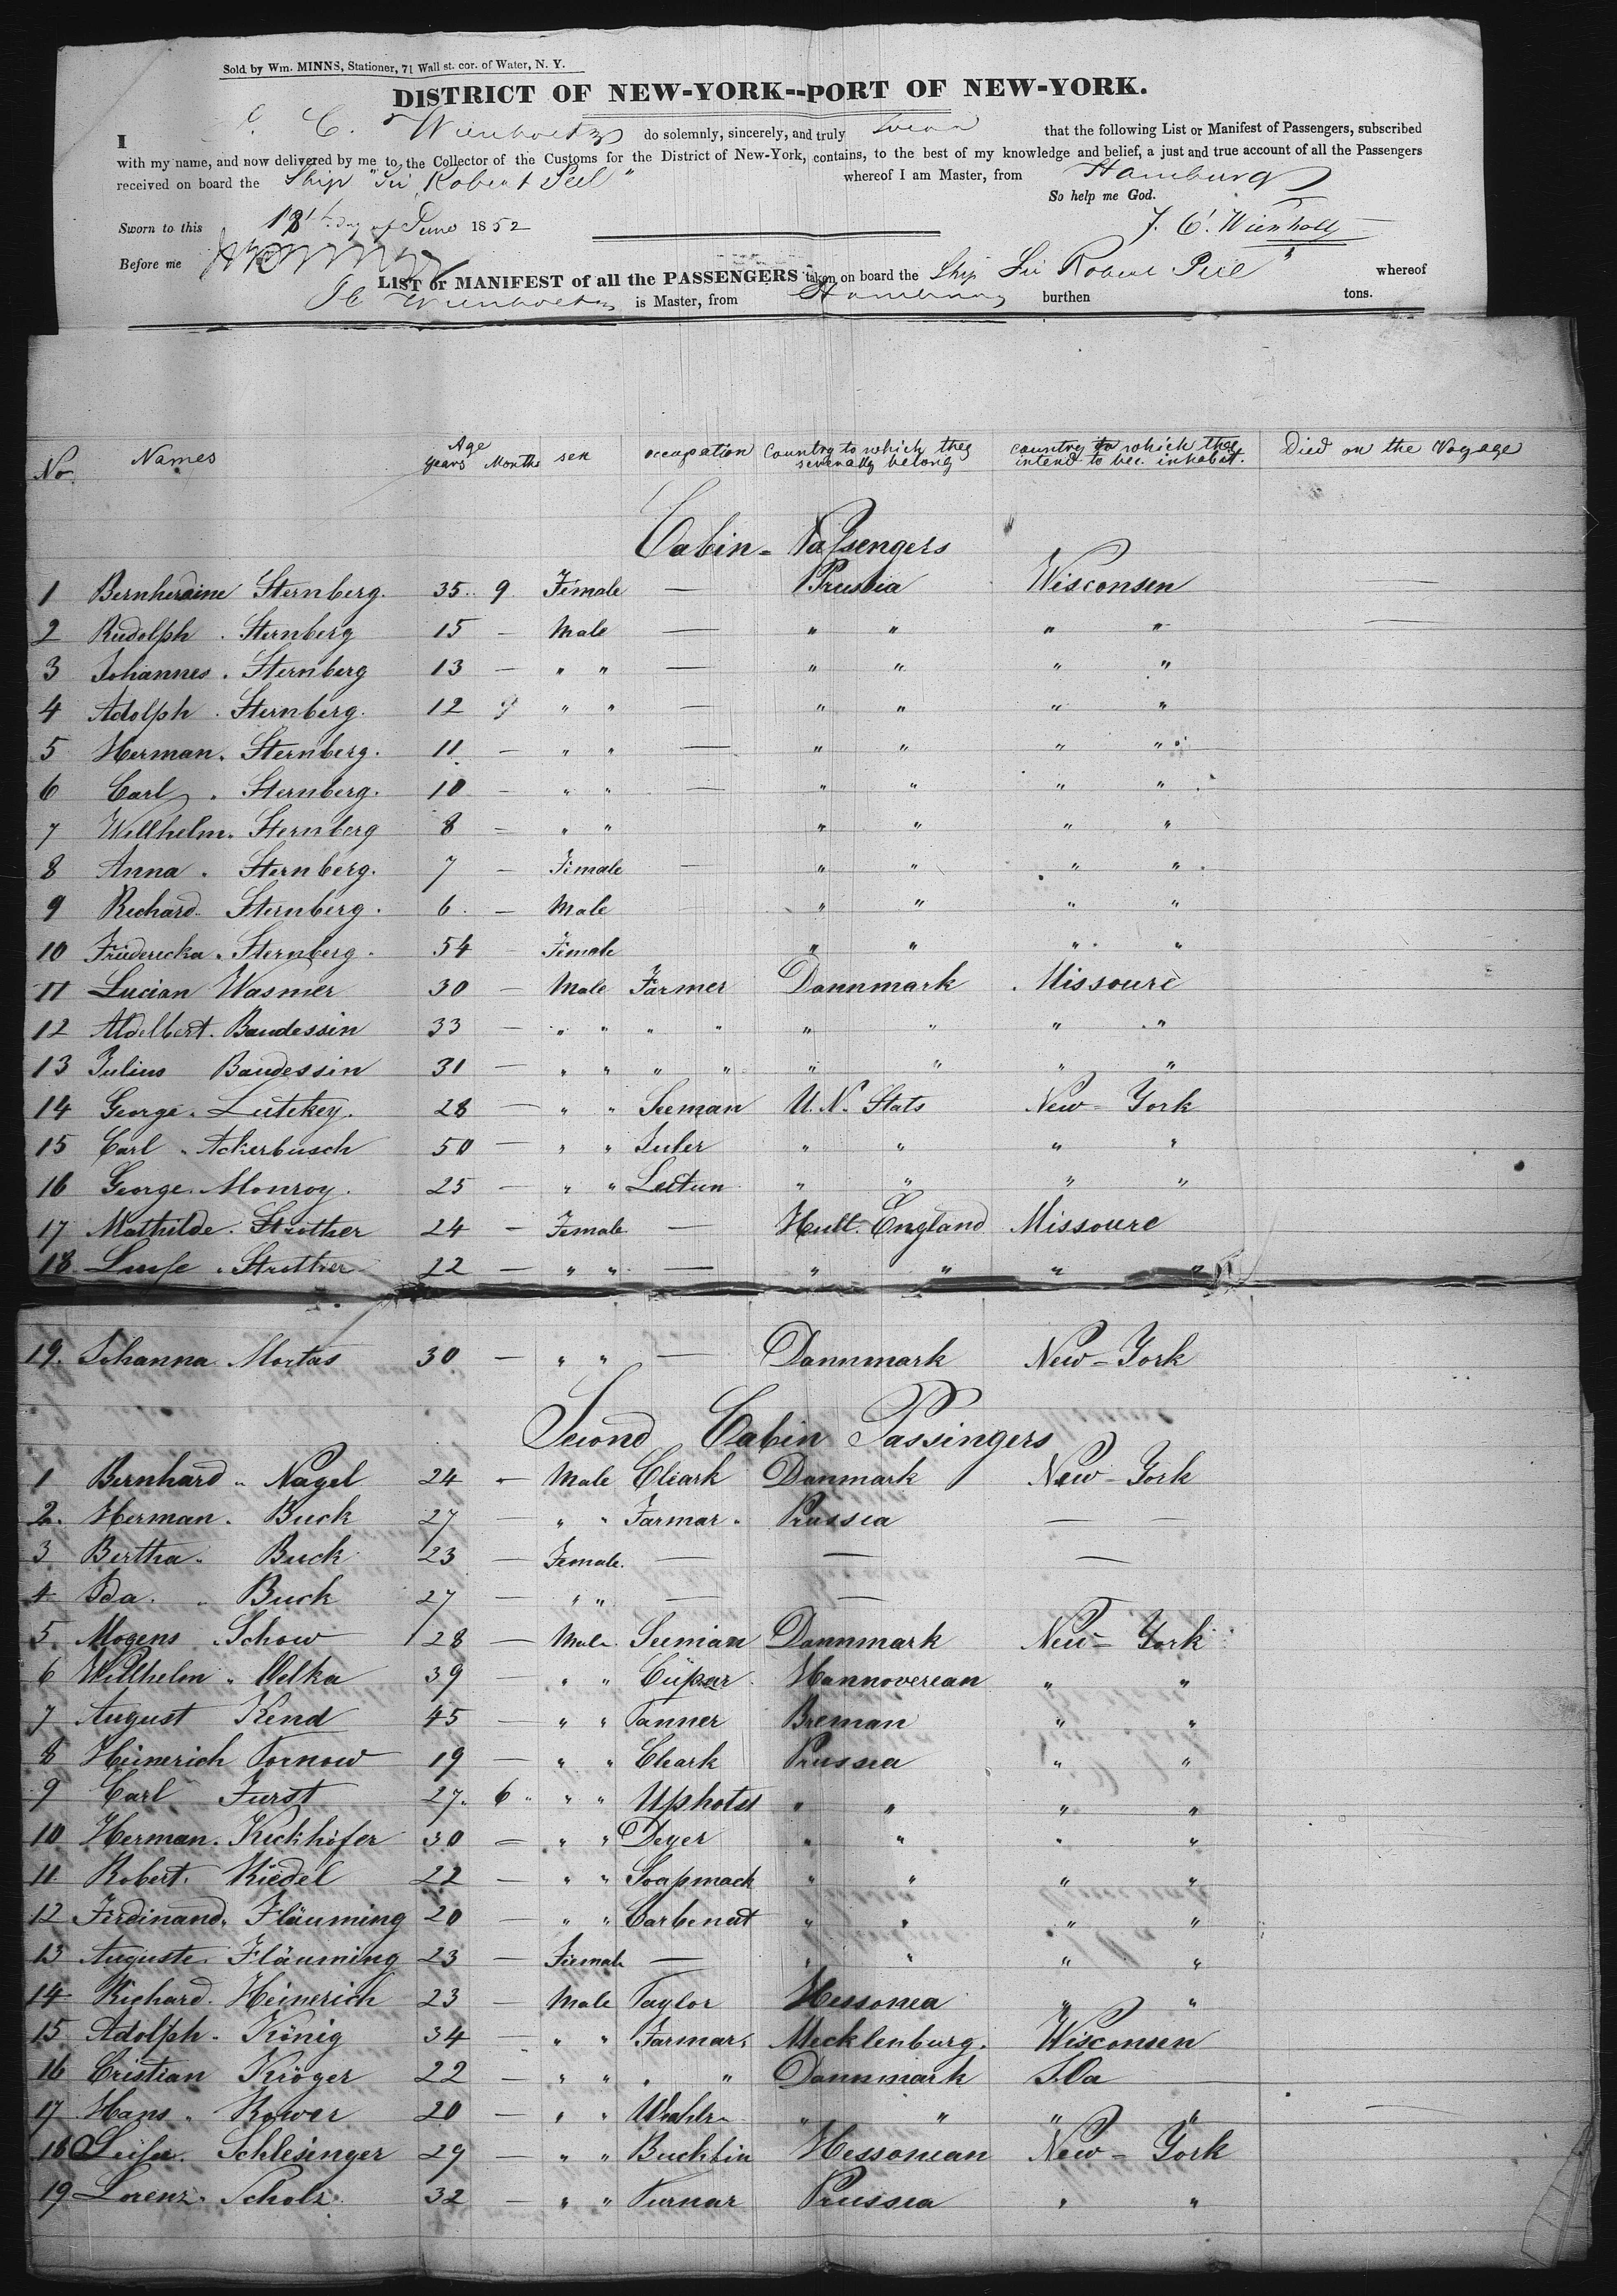 Sold by Wm. MINNS, Stationer, 71 Wall st. cor. of Water, N. Y.
DISTRICT OF NEW-YORK--PORT OF NEW-YORK.
I C. Wienholtz do solemnly, sincerely, and truly that the following List or Manifest of Passengers, subscribed
with my name, and now delivered by me to the Collector of the Customs for the District of New-York, contains, to the best of my knowledge and belief, a just and true account of all the Passengers
received on board the Ship "Sir Robert Peel" whereof I am Master, from Hamburg
So help me God.
Sworn to this 18th day of June 1852
J. C. Wienholtz
Before me
LIST or MANIFEST of all the PASSENGERS taken on board the Ship Sir Robert Peel" whereof
JC Wienholtz is Master, from Hamburg burthen tons.
No. Names Age years Months sex occupation Country to which they severally belong country to which they intend to bec. inhabit. Died on the Voyage
Cabin - Passengers
1 Bernherdine Sternberg. 35 9 Female — Prussia Wisconsen —
2 Rudolph Sternberg 15 — Male — " " " " —
3 Johannes. Sternberg 13 — " " — " " " "
4 Adolph Sternberg. 12 " " — " " " "
5 Herman. Sternberg. 11 — " " — " " " "
6 Carl. Sternberg. 10 — " " — " " " "
7 Willhelm. Sternberg 8 — " " " " " "
8 Anna. Sternberg. 7 — Female — " " " "
9 Richard. Sternberg. 6 — Male " " " "
10 Friedericka. Sternberg. 54 — Female " " " "
11 Lucian Wasmer 30 — Male Farmer Dannmark Missoure
12 Aldelbert. Baudessin 33 — " " " " " " " "
13 Julius Baudessin 31 — " " " " " " " "
14 George. Lutekey. 28 — " " Seeman U. N. Stats New-York
15 Carl. Ackerbusch 50 — " " " " " "
16 George. Monroy. 25 — " " " " " "
17 Mathilde. Strother 24 — Female — Hull. England Missoure
18. Luise. Strother 22 — " " — " " " "
19. Johanna Mortas 30 — " " — Dannmark New-York
Second Cabin Passingers
1 Bernhard " Nagel 24 — Male Cleark Danmark New-York
2. Herman. Buck 27 — " " Farmar. Prussia — —
3 Bertha. Buck 23 — Female. — — —
4 Ida. " Buck 27 — " " — —
5. Mogens Schow 28 — Male. Seeman Dannmark New-York
6 Willhelm. Welka 39 — " " Cüpar. Hannoverean " "
7 August Kend 45 — " " Tanner Breman " "
8 Heinerich Tornow 19 — " " Cleark Prussea " "
9 Carl Furst 27. 6 " " " Uphotst " " " "
10 Herman. Kickhöfer 30 — " " Deyer " " " "
11. Robert. Riedel 22 — " " Soapmach " " " "
12 Ferdinand. Fläuming 20 — " " Carbenut " " " "
13 Auguste. Fläuming 23 — Female — " " " "
14 Richard. Heinerich 23 — Male Taylor Hessonea " "
15 Adolph. König 34 — " " Farmar. Mecklenburg. Wisconsen
16 Cristian Kröger 22 — " " " " Dannmark
17 Hans. Rower 20 — " " " " " " —
18 Schlesinger 29 — " " Buchbin Hessonean New-York
19 Lorenz. Scholz. 32 — " " Turnar Prussea " "